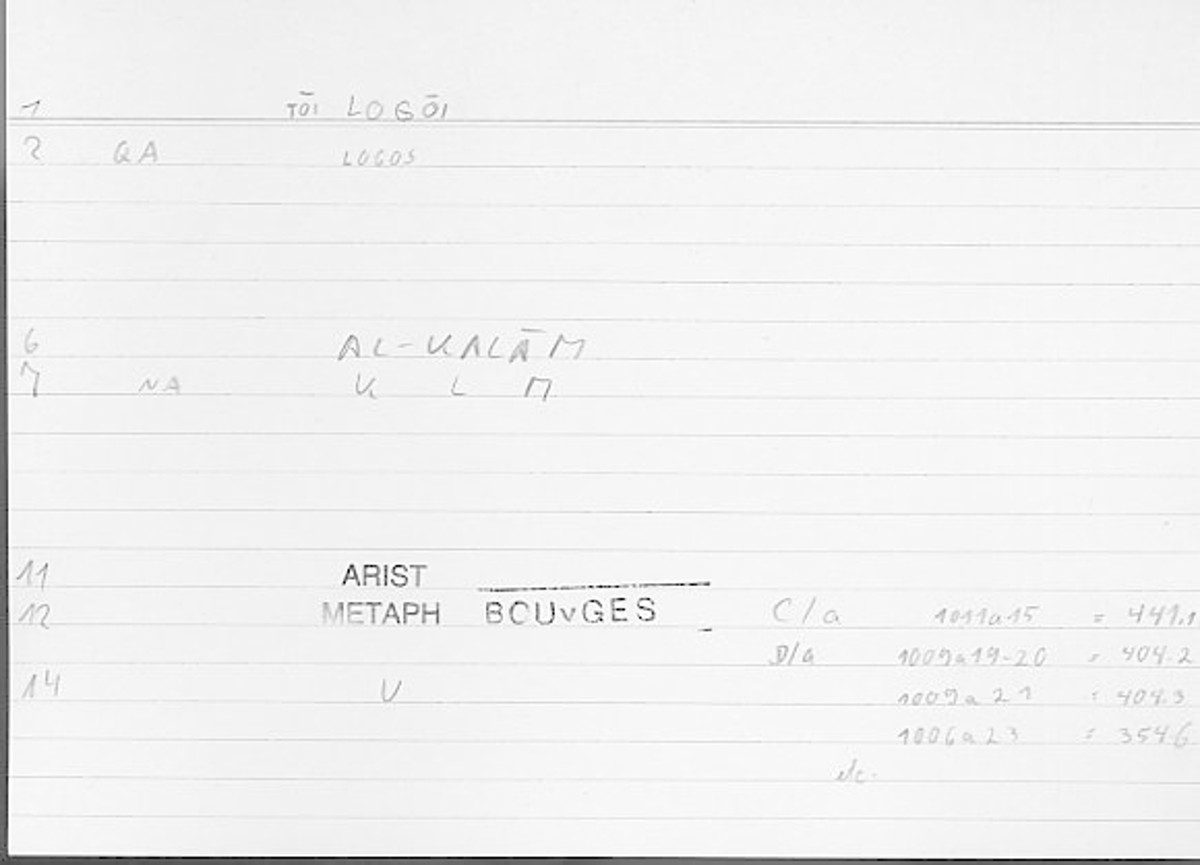 1 TŌI LOGŌI
2 QA LOGOS
6 AL-KALĀM
7 NA K L M
11 ARIST
12 METAPH BOUvGES C/a 1011a15 = 441.1
D/a 1009a19-20 = 404.2
14 V 1009a21 = 404.3
1006a23 = 354.6
etc.